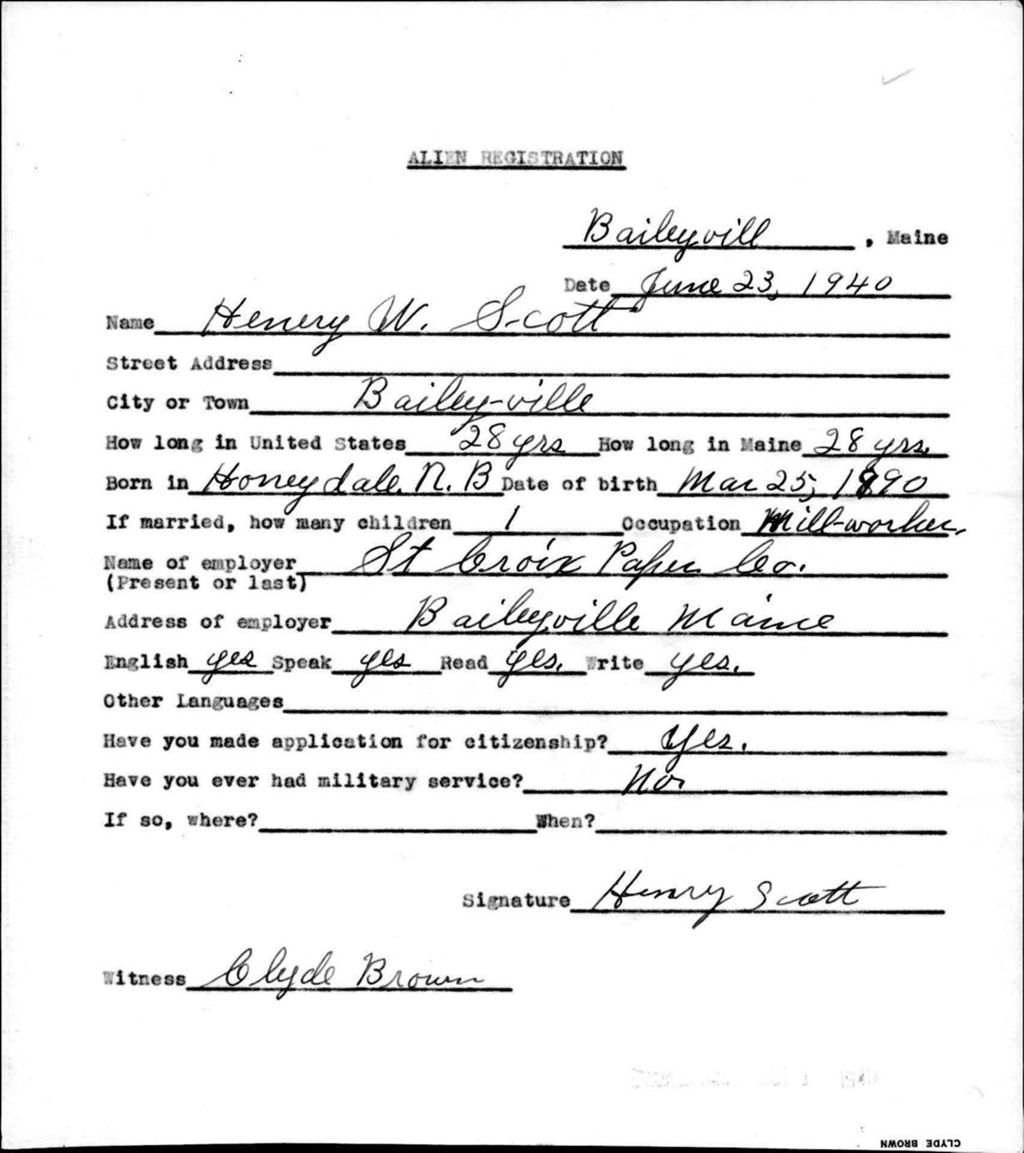 ALIEN REGISTRATION
Baileyvill, Maine
Date June 23, 1940
Name Henery W. Scott
Street Address
City or Town Bailey-ville
How long in United States 28 yrs How long in Maine 28 yrs.
Born in Honeydale. N. B Date of birth Mar 25, 1890
If married, how many children 1 Occupation Mill-worker.
Name of employer St Croix Paper Co.
(Present or last)
Address of employer Baileyville Maine
English yes Speak yes Read yes. Write yes.
Other Languages
Have you made application for citizenship? Yes.
Have you ever had military service? No.
If so, where? When?
Signature Henry Scott
Witness Clyde Brown
CLYDE BROWN